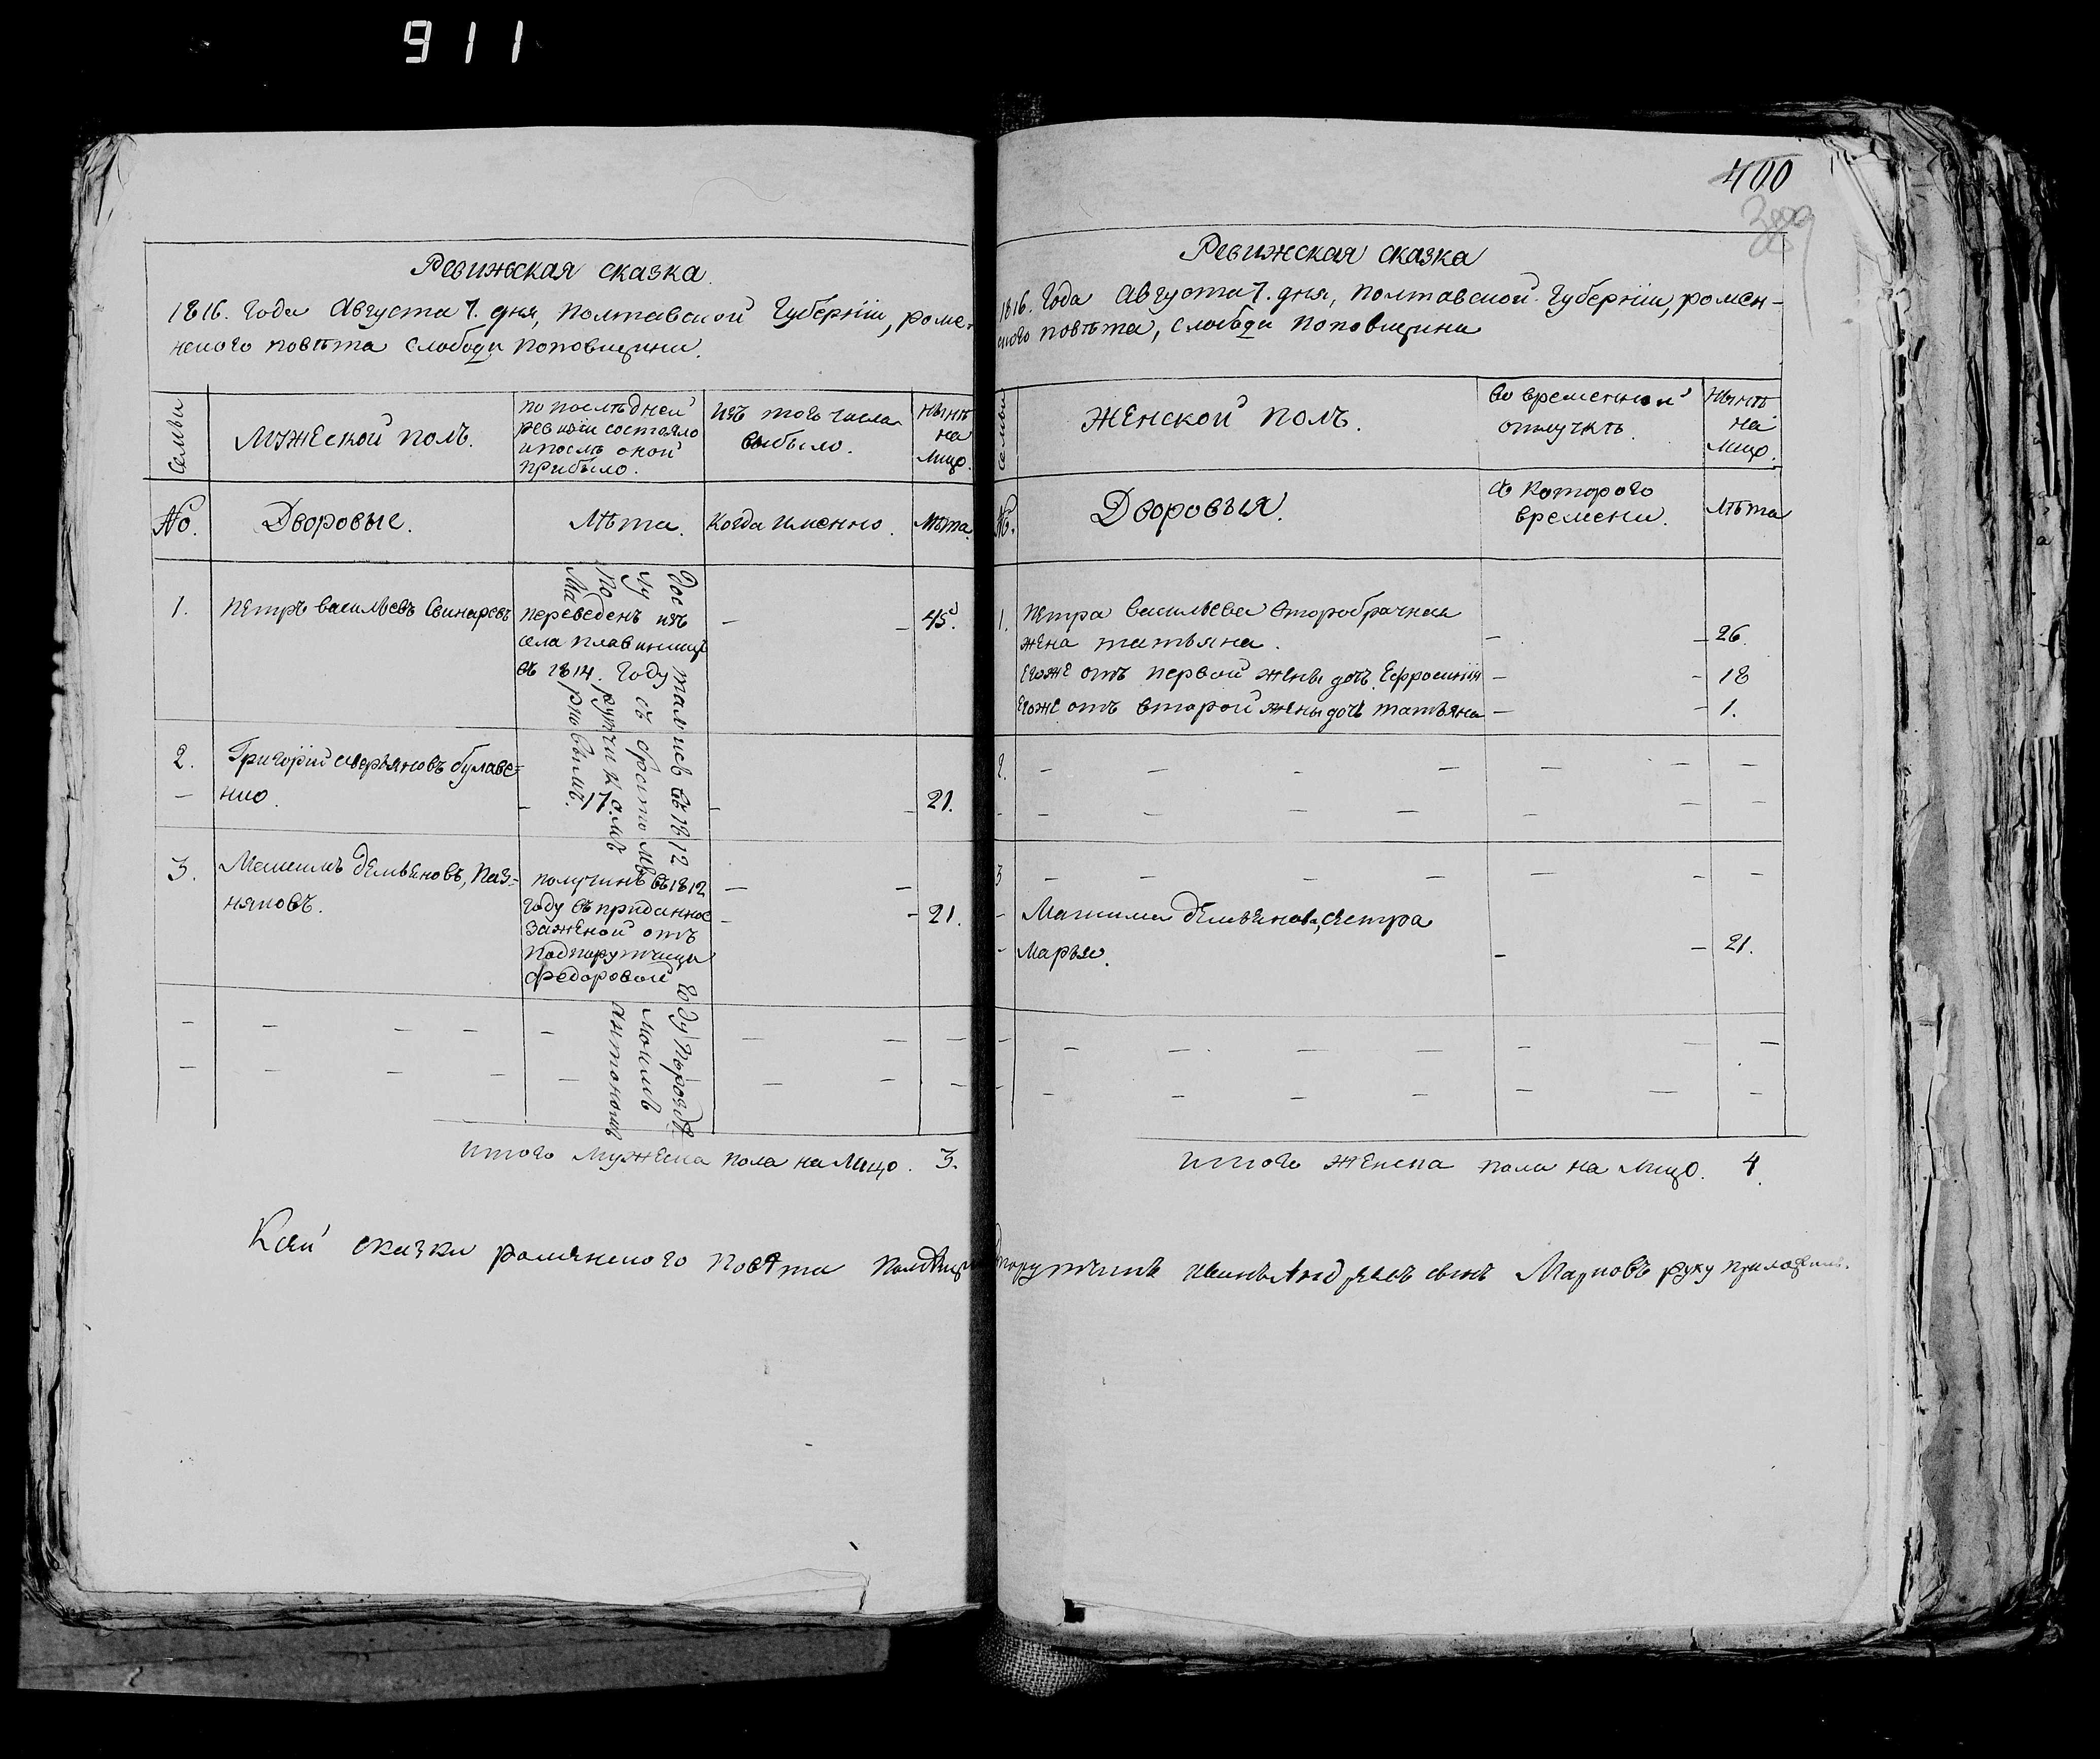 911
Ревижская сказка.
1816. Года Августа 7. дня, Полтавской Губернїи, роме-
нского повѣта Слободи Поповщини.
Семьи
Мужеской полъ.
по последней
ревизїи состояло
и после оной
прибыло.
изъ того числа
выбыло.
Нынѣ
на
лицо.
No.
Дворовые.
Лѣта.
Когда именно.
Лѣта.
1.
Петръ васильевъ Свинаревъ
переведенъ изъ
села плавинищ
въ 1814. Году
45.
2.
Григорїй аверьяновъ булаве=
нко.
17.
21.
3.
Максимъ демьяновъ, Поз=
няковъ.
получинъ въ 1812
году въ приданное
за женой отъ
Подпорутчицы
Федоровой
21.
Достался въ 1812 году По розде
лу съ братомъ Моимъ
По рутчикомъ Антономъ
Марковымъ.
Итого мужеска пола на лицо. 3.
400
389
Ревижская сказка
1816. Года Августа 7. дня, Полтавской Губернїи, ромен-
ского повѣта, Слободи Поповщини
Семьи
Женской полъ.
во временной
отлучкѣ.
Нынѣ
на
лицо.
No.
Дворовыя.
съ Которого
времени.
Лѣта
1.
Петра васильева второбрачная
жена татьяна.
26.
Егоже отъ первой жены дочь Ефросинїя
18
Егоже отъ второй жены дочь татьяна
1.
2.
3
Максима демьянова, сестра
Марья.
21.
Итого женска пола на лицо. 4.
К сей сказки роменского повѣта подпорутчикъ иванъ Андреевъ сынъ Марковъ руку приложилъ.